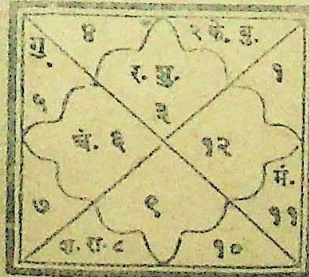 ४ २ के. बु.
गु. र. शु. १
३
५ चं. ६ १२
मं.
७ ९ ११
श. रा. ८ १०